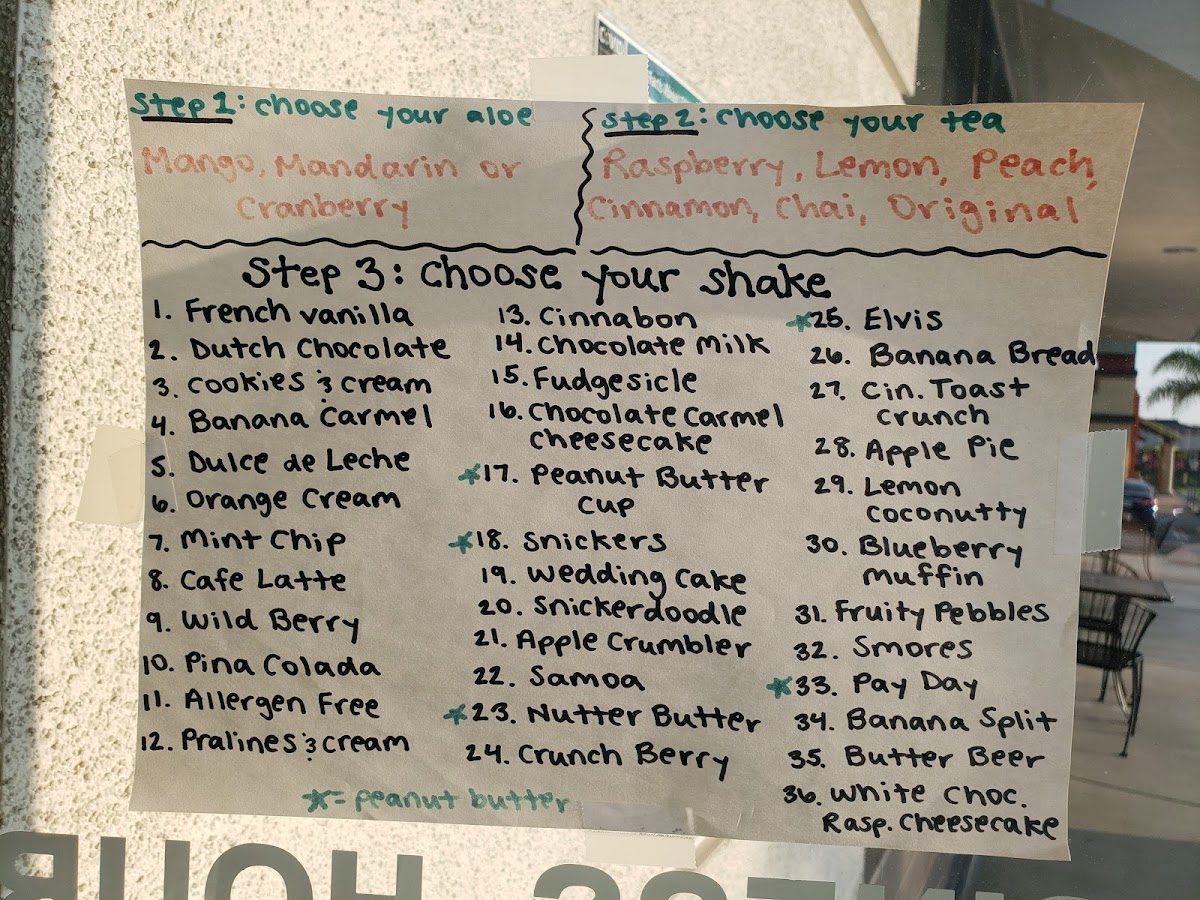 Step 1: choose your aloe
Mango, Mandarin or
Cranberry
Step 2: choose your tea
Raspberry, Lemon, Peach,
Cinnamon, Chai, Original
Step 3: Choose your shake
1. French vanilla
2. Dutch Chocolate
3. Cookies & cream
4. Banana Carmel
5. Dulce de Leche
6. Orange Cream
7. Mint Chip
8. Cafe Latte
9. Wild Berry
10. Pina Colada
11. Allergen Free
12. Pralines & cream
13. Cinnabon
14. Chocolate Milk
15. Fudgesicle
16. Chocolate Carmel
cheesecake
*17. Peanut Butter
cup
*18. Snickers
19. Wedding Cake
20. Snickerdoodle
21. Apple Crumbler
22. Samoa
*23. Nutter Butter
24. Crunch Berry
*25. Elvis
26. Banana Bread
27. Cin. Toast
crunch
28. Apple Pie
29. Lemon
coconutty
30. Blueberry
muffin
31. Fruity Pebbles
32. Smores
*33. Pay Day
34. Banana Split
35. Butter Beer
36. White Choc.
Rasp. Cheesecake
*= peanut butter